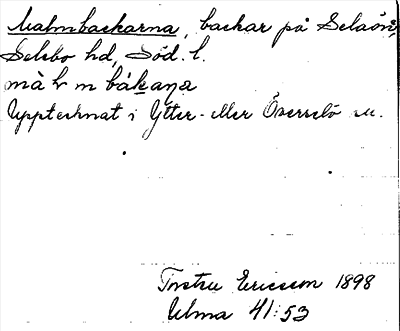 Malmbackarna, backar på Selaön,
Selebo hd, Söd. l.
màlmbákaṇa
Upptecknat i Ytter- eller Överselö sn.
Torsten Ericsson 1898
Ulma 41:53